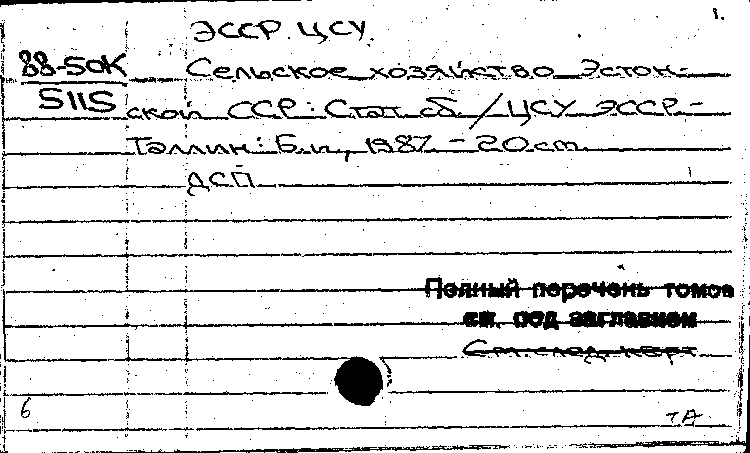 1.
ЭССР. ЦСУ.
88-50К
5115
Сельское хозяйство Эстон-
ской ССР: Стат. сб. / ЦСУ ЭССР.-
Таллин: Б.и., 1987. - 20 cm.
ДСП
Полный перечень томов
см. под заглавием
См. след. карт.
6
ТА